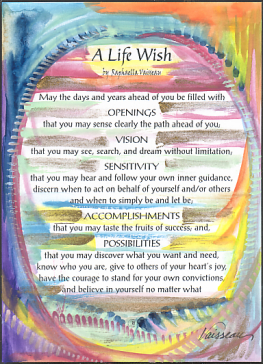 A Life Wish
by Raphaella Vaisseau
May the days and years ahead of you be filled with
OPENINGS
that you may sense clearly the path ahead of you,
VISION
that you may see, search, and dream without limitation,
SENSITIVITY
that you may hear and follow your own inner guidance,
discern when to act on behalf of yourself and/or others
and when to simply be and let be,
ACCOMPLISHMENTS
that you may taste the fruits of success, and,
POSSIBILITIES
that you may discover what you want and need,
know who you are, give to others of your heart's joy,
have the courage to stand for your own convictions,
and believe in yourself no matter what
Vaisseau